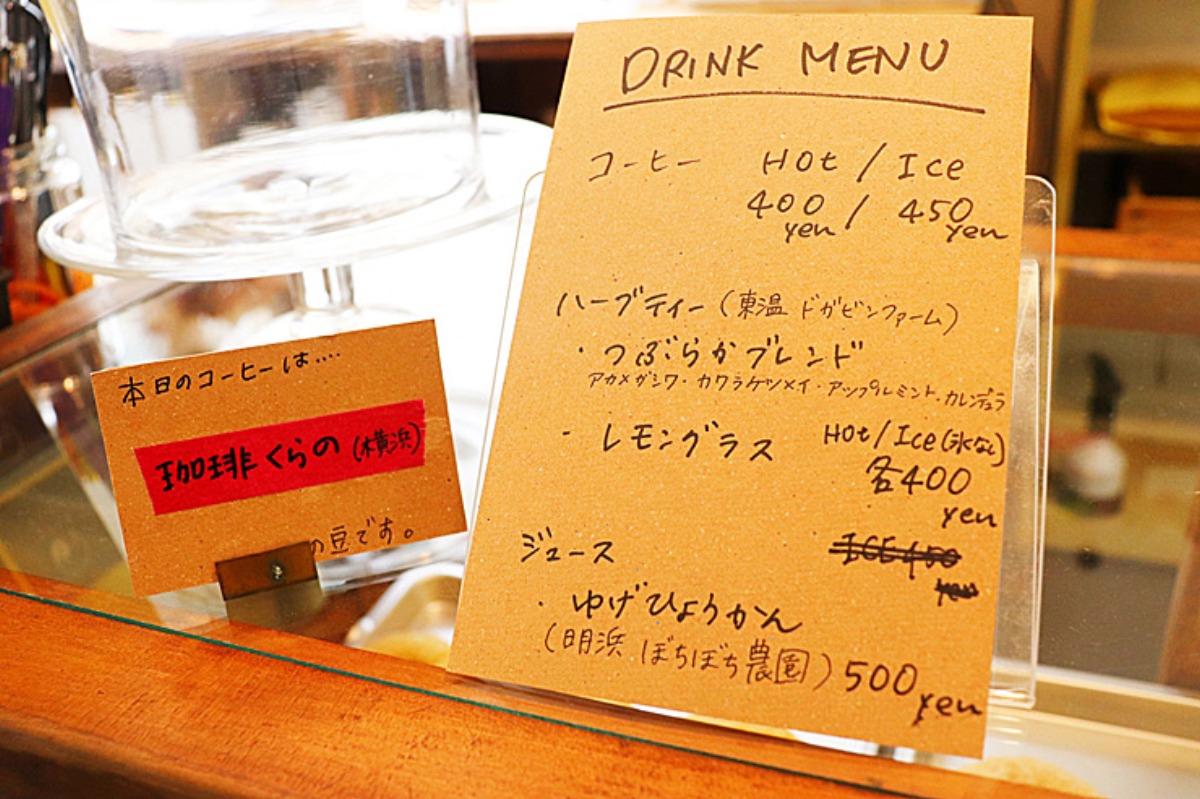 DRINK MENU
コーヒー Hot / Ice
400 yen / 450 yen
ハーブティー (東温 ドガビンファーム)
・つぶらかブレンド
アカメガシワ・カワラケツメイ・アップルミント・カレンデュラ
・レモングラス Hot / Ice (氷なし)
各400
yen
ジュース ICE 450
yen
・ゆげひょうかん
(明浜 ぼちぼち農園) 500 yen
本日のコーヒーは....
珈琲くらの (横浜)
の豆です。